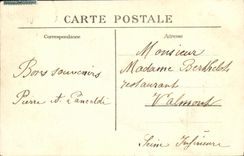 CARTE POSTALE
Correspondance
Adresse
Monsieur
Madame Berthelot
restaurant
Valmont
Seine Inférieure
Bons souvenirs
Pierre et